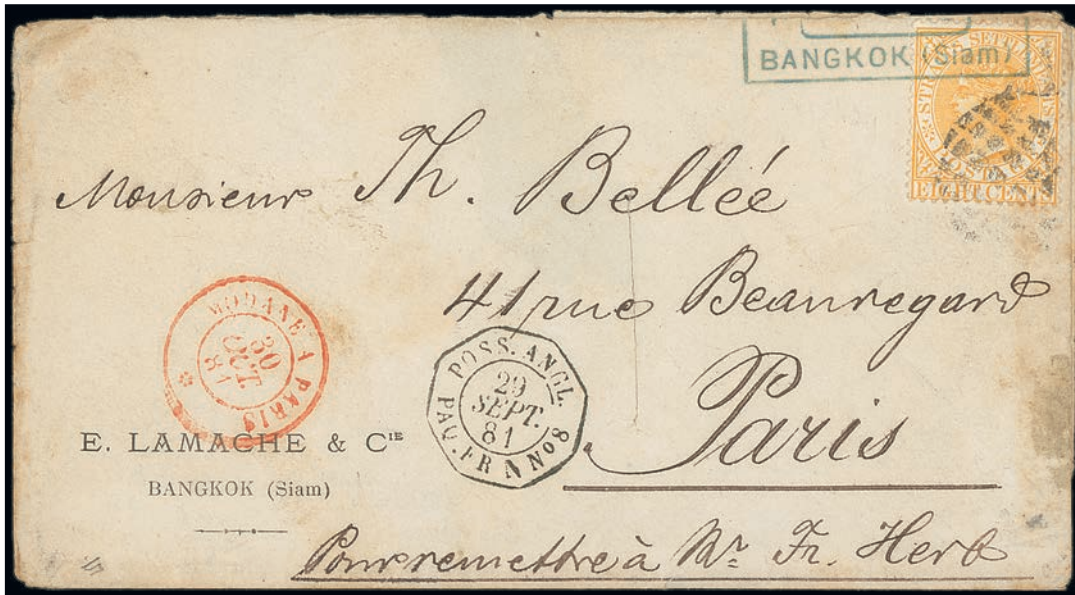 BANGKOK (Siam)
STRAITS SETTLEMENTS
EIGHT CENTS
Monsieur Th. Bellée
41 rue Beauregard
Paris
MODANE A PARIS
30
OCT
81
POSS. ANGL.
29
SEPT.
81
PAQ. FR N Nº 8
E. LAMACHE & CIE
BANGKOK (Siam)
Pour remettre à Mr Fr. Herb